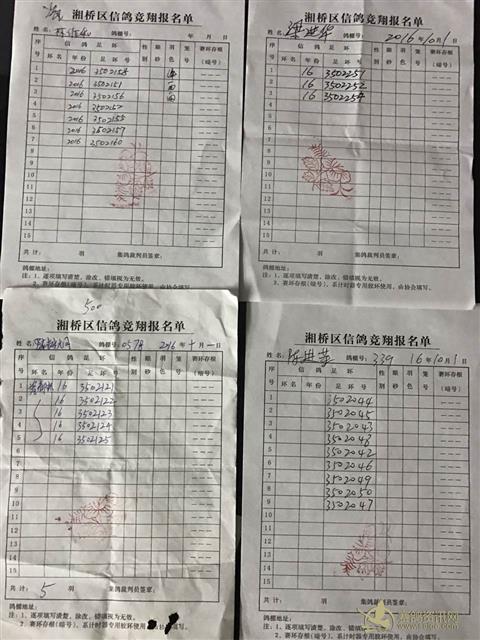 湘桥区信鸽竞翔报名单
姓名: 鸽棚号: 年 月 日
序号 信鸽足环 性别 眼砂 羽色 笼号 赛环存根(暗号)
环名 年份 足环号
1 2016 3502154
2 2016 3502151
3 2016 3502156
4 2016 3502152
5 2016 3502155
6 2016 3502157
7 2016 3502160
8
9
10
11
12
13
14
15
共计: 羽 集鸽裁判员签章:
鸽棚地址:
注:1、逐项填写清楚,涂改、错填视为无效。
2、赛环存根(暗号),系计时器专用鸽环使用,由协会填写。
湘桥区信鸽竞翔报名单
姓名: 鸽棚号: 2016年10月1日
序号 信鸽足环 性别 眼砂 羽色 笼号 赛环存根(暗号)
环名 年份 足环号
1 16 3502251
2 16 3502252
3 16 3502254
4
5
6
7
8
9
10
11
12
13
14
15
共计: 羽 集鸽裁判员签章:
鸽棚地址:
注:1、逐项填写清楚,涂改、错填视为无效。
2、赛环存根(暗号),系计时器专用鸽环使用,由协会填写。
500
湘桥区信鸽竞翔报名单
姓名: 鸽棚号: 0578 2016年十月一日
序号 信鸽足环 性别 眼砂 羽色 笼号 赛环存根(暗号)
环名 年份 足环号
1 16 3502121
2 16 3502122
3 16 3502123
4 16 3502124
5 16 3502125
6
7
8
9
10
11
12
13
14
15
共计: 5 羽 集鸽裁判员签章:
鸽棚地址:
注:1、逐项填写清楚,涂改、错填视为无效。
2、赛环存根(暗号),系计时器专用鸽环使用
湘桥区信鸽竞翔报名单
姓名: 鸽棚号: 339 16年10月1日
序号 信鸽足环 性别 眼砂 羽色 笼号 赛环存根(暗号)
环名 年份 足环号
1 3502044
2 3502045
3 3502043
4 3502048
5 3502042
6 3502046
7 3502049
8 3502050
9 3502047
10
11
12
13
14
15
共计: 羽 集鸽裁判员签章:
鸽棚地址:
注:1、逐项填写清楚,涂改、错填视为无效。
2、赛环存根(暗号),系计时器专用
赛鸽资讯网